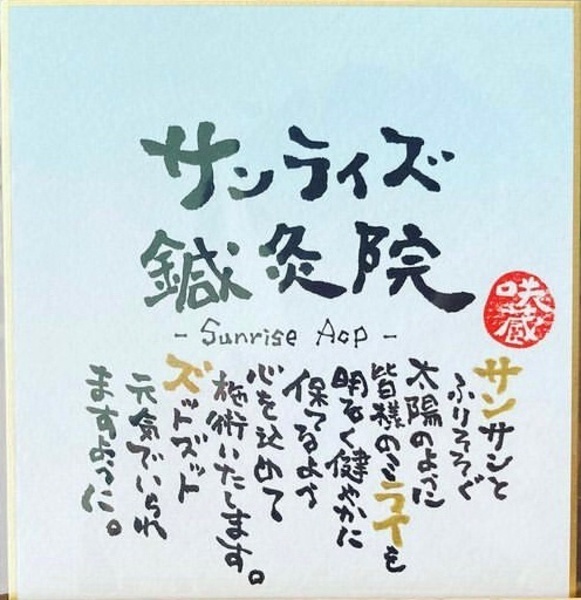 サンライズ
鍼灸院
- Sunrise Acp -
咲蔵
サンサンと
ふりそそぐ
太陽のように
皆様のミライを
明るく健やかに
保てるよう
心を込めて
施術いたします。
ズットズット
元気でいられ
ますように。